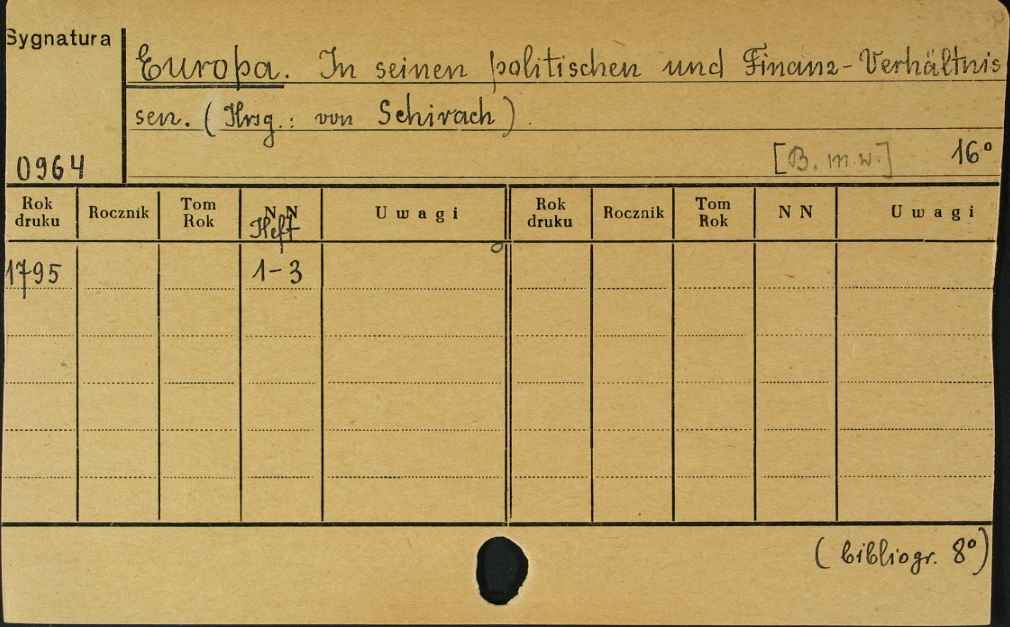 Sygnatura
Europa. In seinen politischen und Finanz-Verhältnis
sen. (Hrsg.: von Schirach).
0964 [B. m. w.] 16°
Rok druku Rocznik Tom Rok NN Heft Uwagi Rok druku Rocznik Tom Rok NN Uwagi
1795 1-3
(bibliogr. 8°)